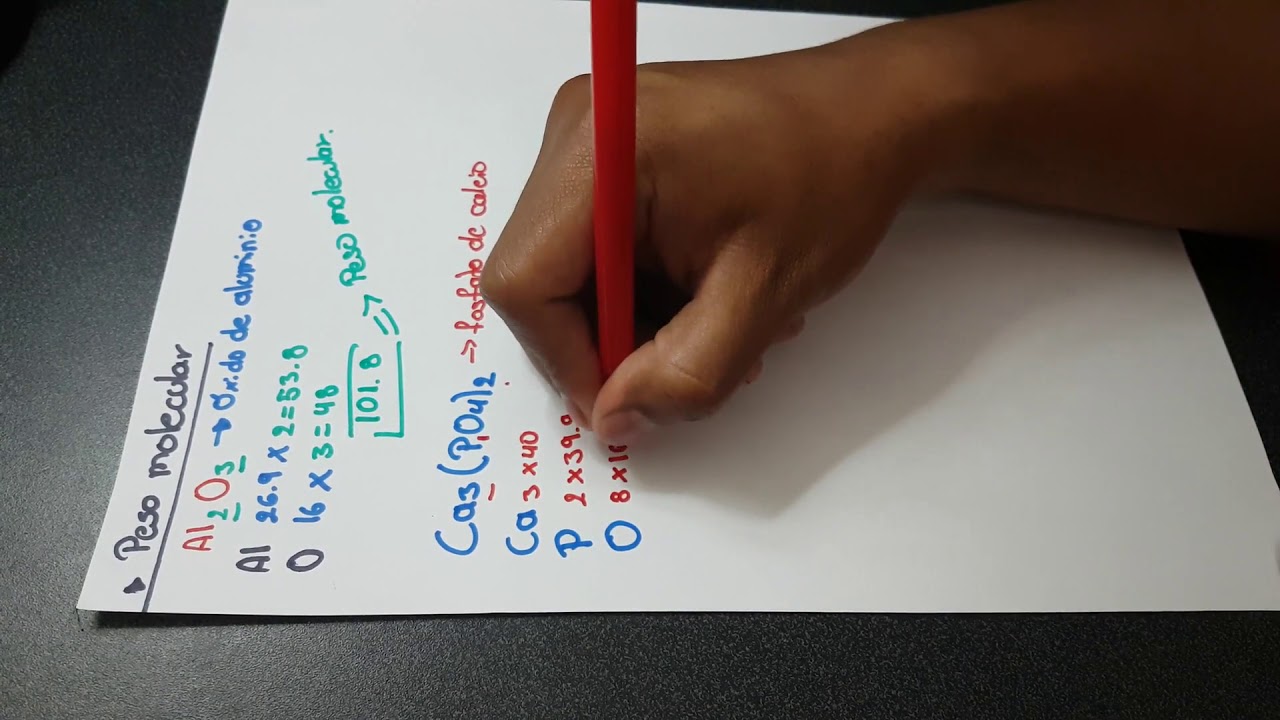 ▸ Peso molecular
Al2O3 → Óxido de aluminio
Al 26.9 x 2 = 53.8
O 16 x 3 = 48
101.8 => Peso molecular.
Ca3(PO4)2 → fosfato de calcio
Ca 3 x 40
P 2 x 39.9
O 8 x 16